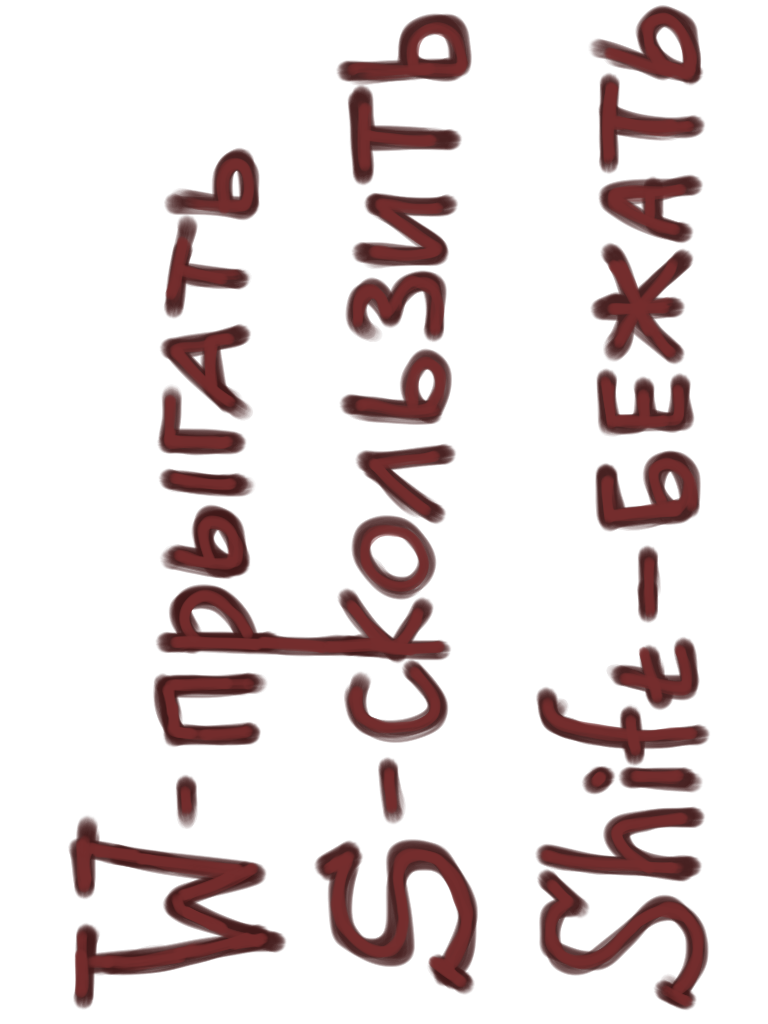 W-прыгать
S-скользить
Shift-БЕЖАТЬ